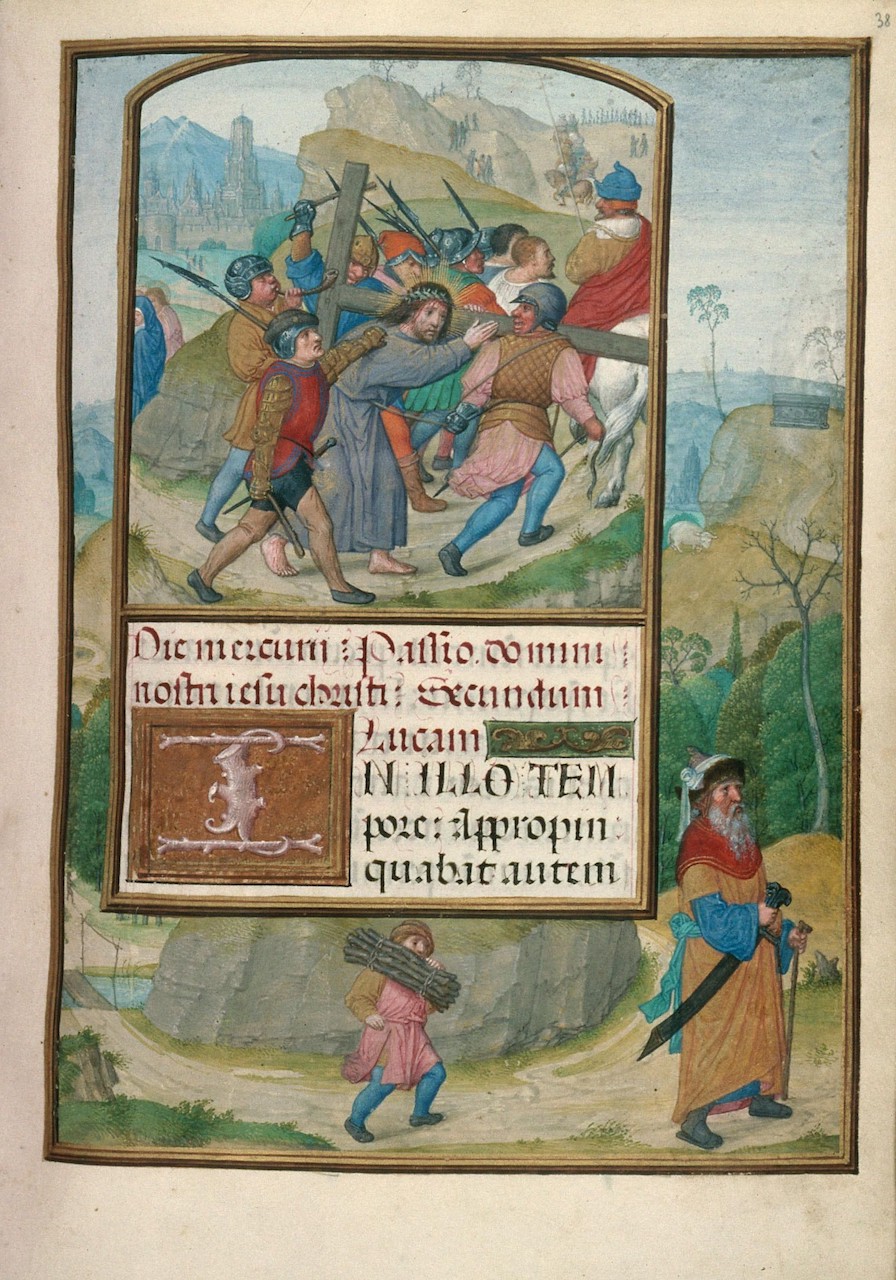 38
Die mercurii : Passio. domini
nostri iesu christi : Secundum
Lucam
IN ILLO TEM
pore : Appropin
quabat autem